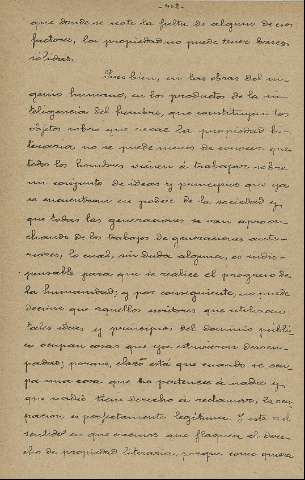 que donde se note la falta de alguno de esos
factores, la propiedad no puede tener bases
solidas.
Pues bien, en las obras del in-
genio humano, en los productos de la in-
teligencia del hombre, que constituyen los
objetos sobre que recae la propiedad li-
teraria no se puede menos de conocer que
todos los hombres vienen á trabajar sobre
un conjunto de ideas y principios que ya
se encuentran en poder de la sociedad y
que todas las generaciones se van aprove-
chando de los trabajos de generaciones ante-
riores, lo cual, sin duda alguna, es indis-
pensable para que se realice el progreso de
la humanidad; y por consiguiente, no puede
decirse que aquellos escritores que utilizan
tales ideas y principios del dominio publi-
co ocupan cosas que ya estuvieron desocu-
padas; porque, claro está que cuando se ocu-
pa una cosa que no pertenece á nadie y
que nadie tiene derecho á reclamarla, la ocu-
pacion es perfectamente legítima. Y este es el
sentido en que creemos que flaquea el dere-
cho de propiedad literaria, porque como quiera